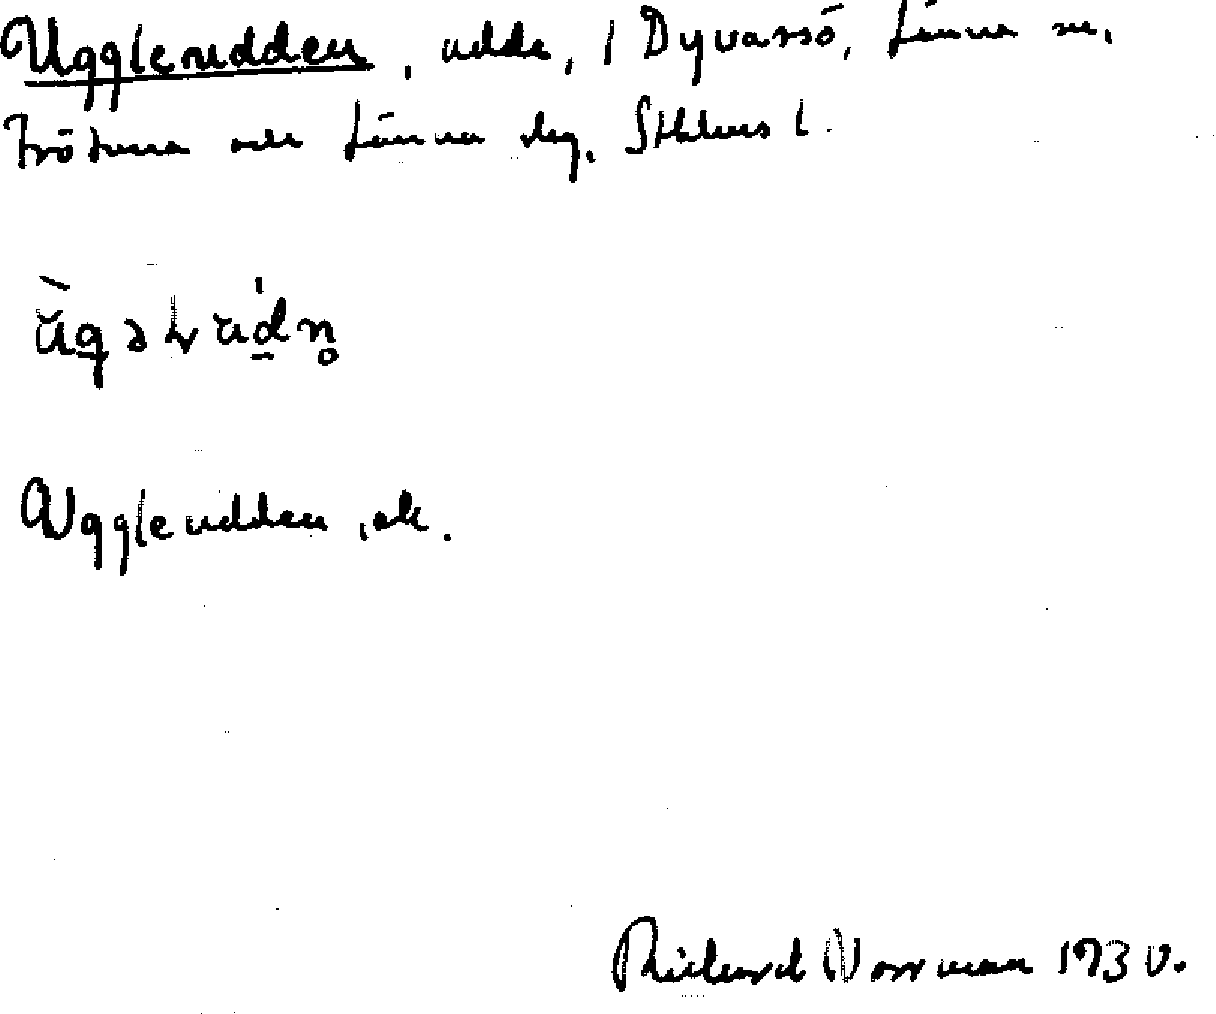 Uggleudden, udde, i Dyvassö, Länna sn,
Frötuna och Länna slg. Sthlms l.
Uggleudden, ek.
Richard Norrman 1930.